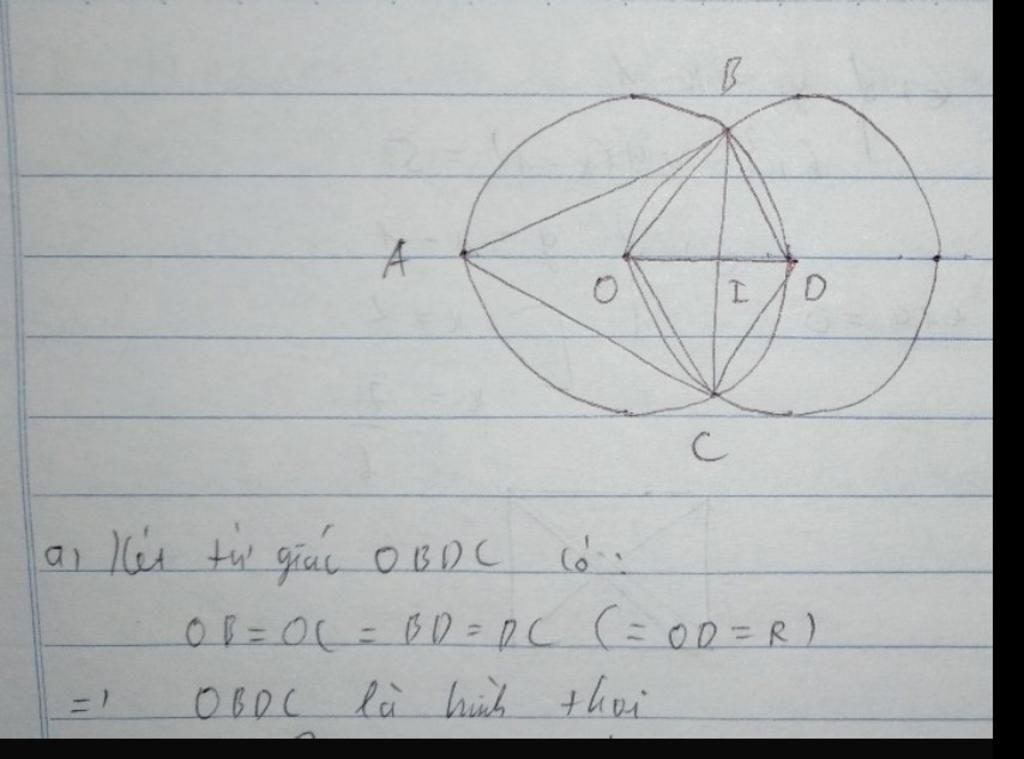 B
A
O I D
C
a) Xét tứ giác OBDC có:
OB = OC = BD = DC (= OD = R)
=> OBDC là hình thoi